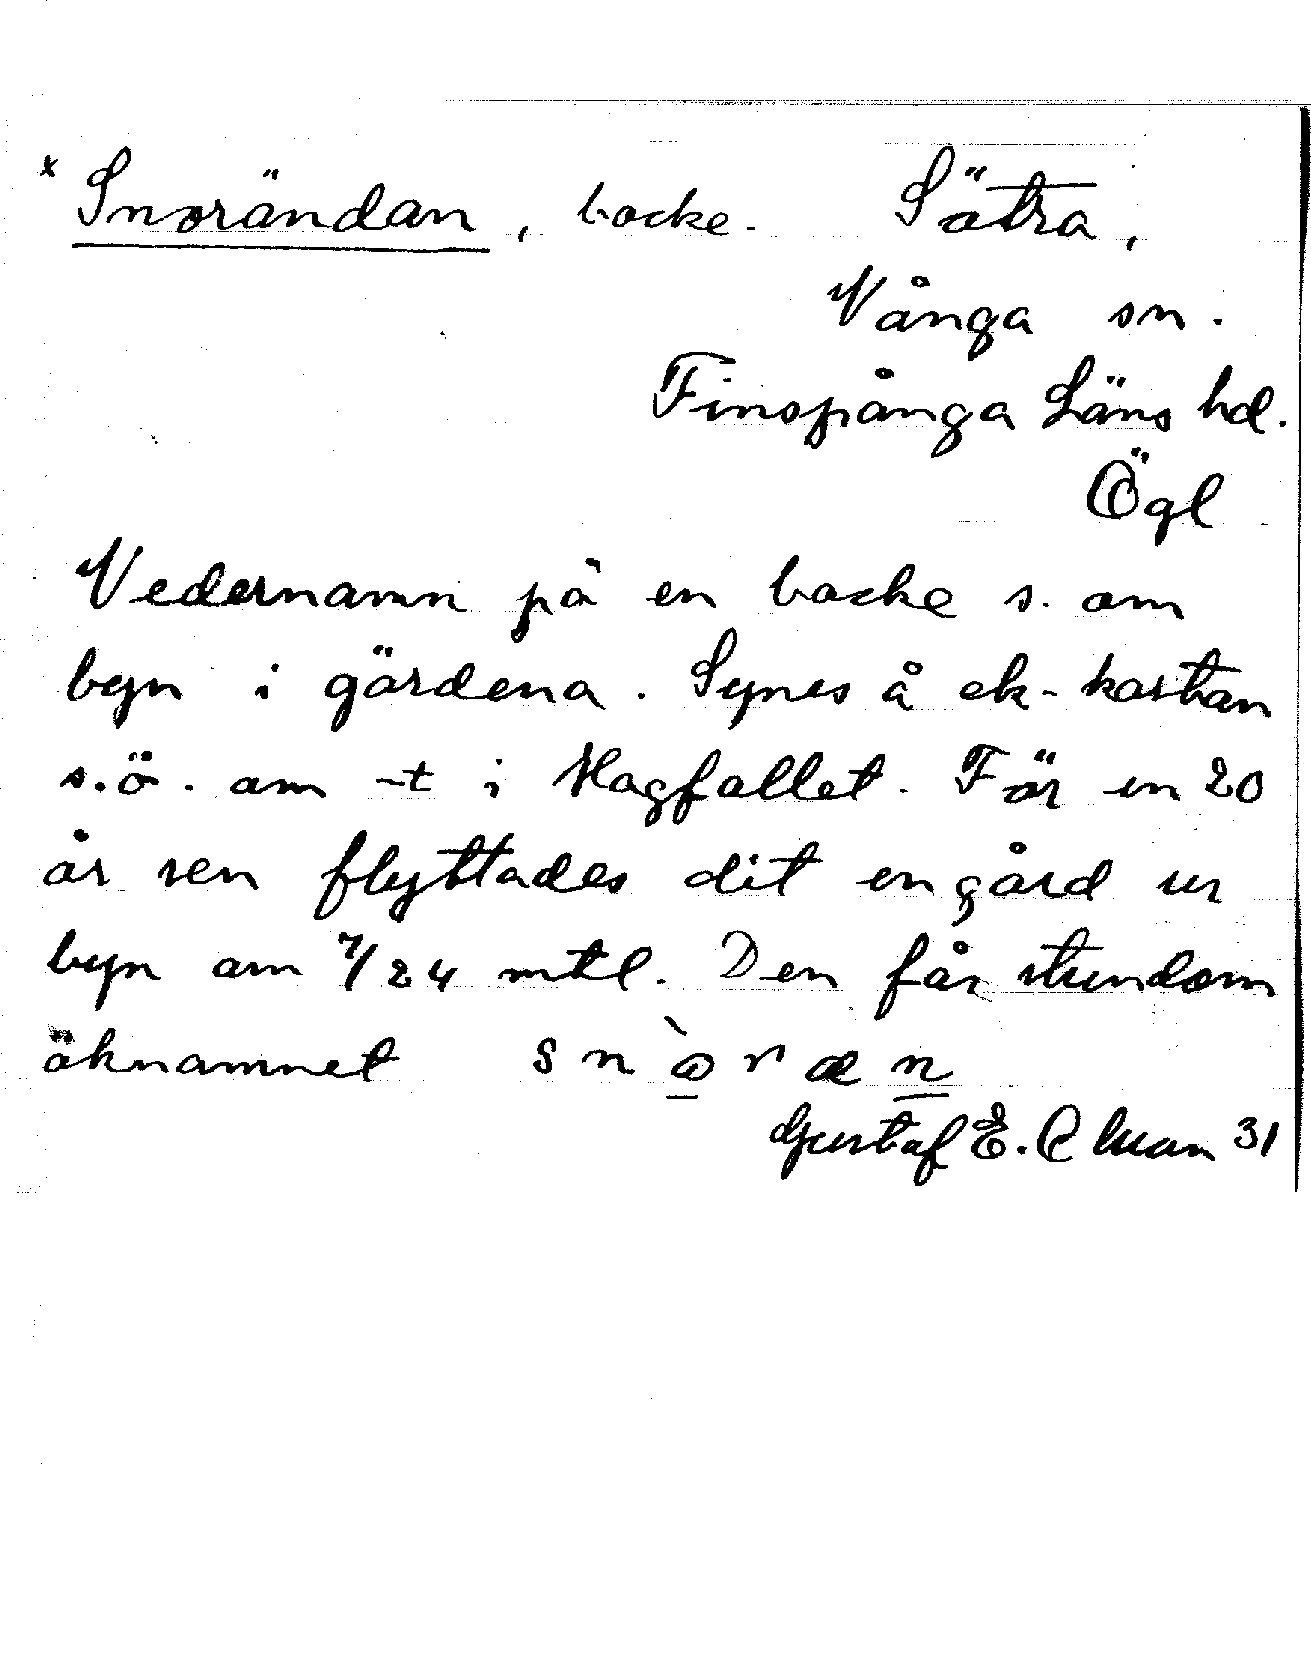 x Snorändan, backe. Sätra,
Vånga sn.
Finspånga Läns hd.
Ögl
Vedernamn på en backe s. om
byn i gärdena. Synes å ek-kartan
s.ö. om -t i Hagfallet. För en 20
år sen flyttades dit en gård ur
byn om 7/24 mtl. Den får stundom
öknamnet snòræn
Gustaf E. Ekman 31